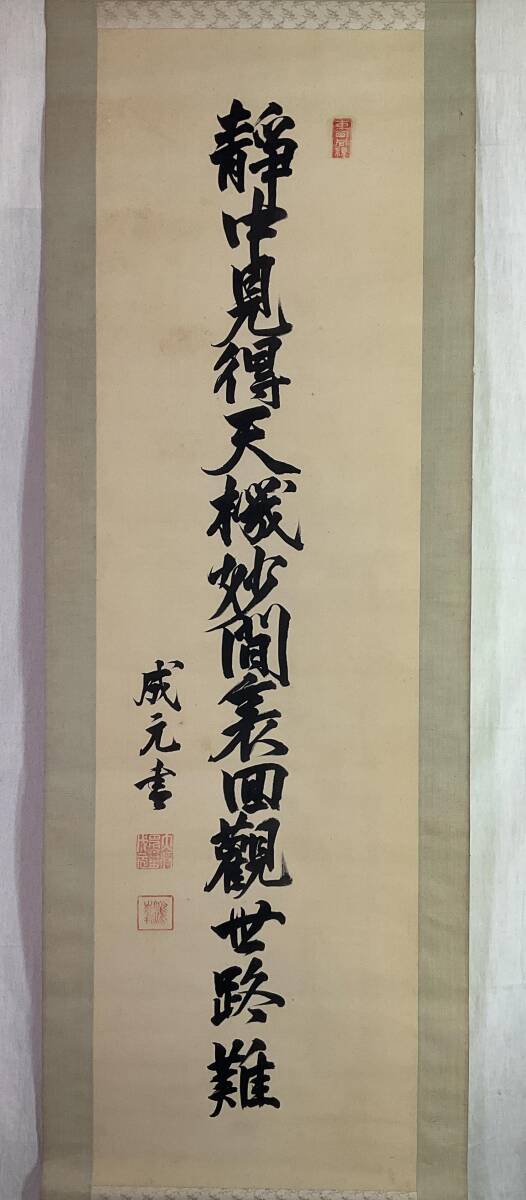 靜中見得天機妙間裏回觀世路難
成元書